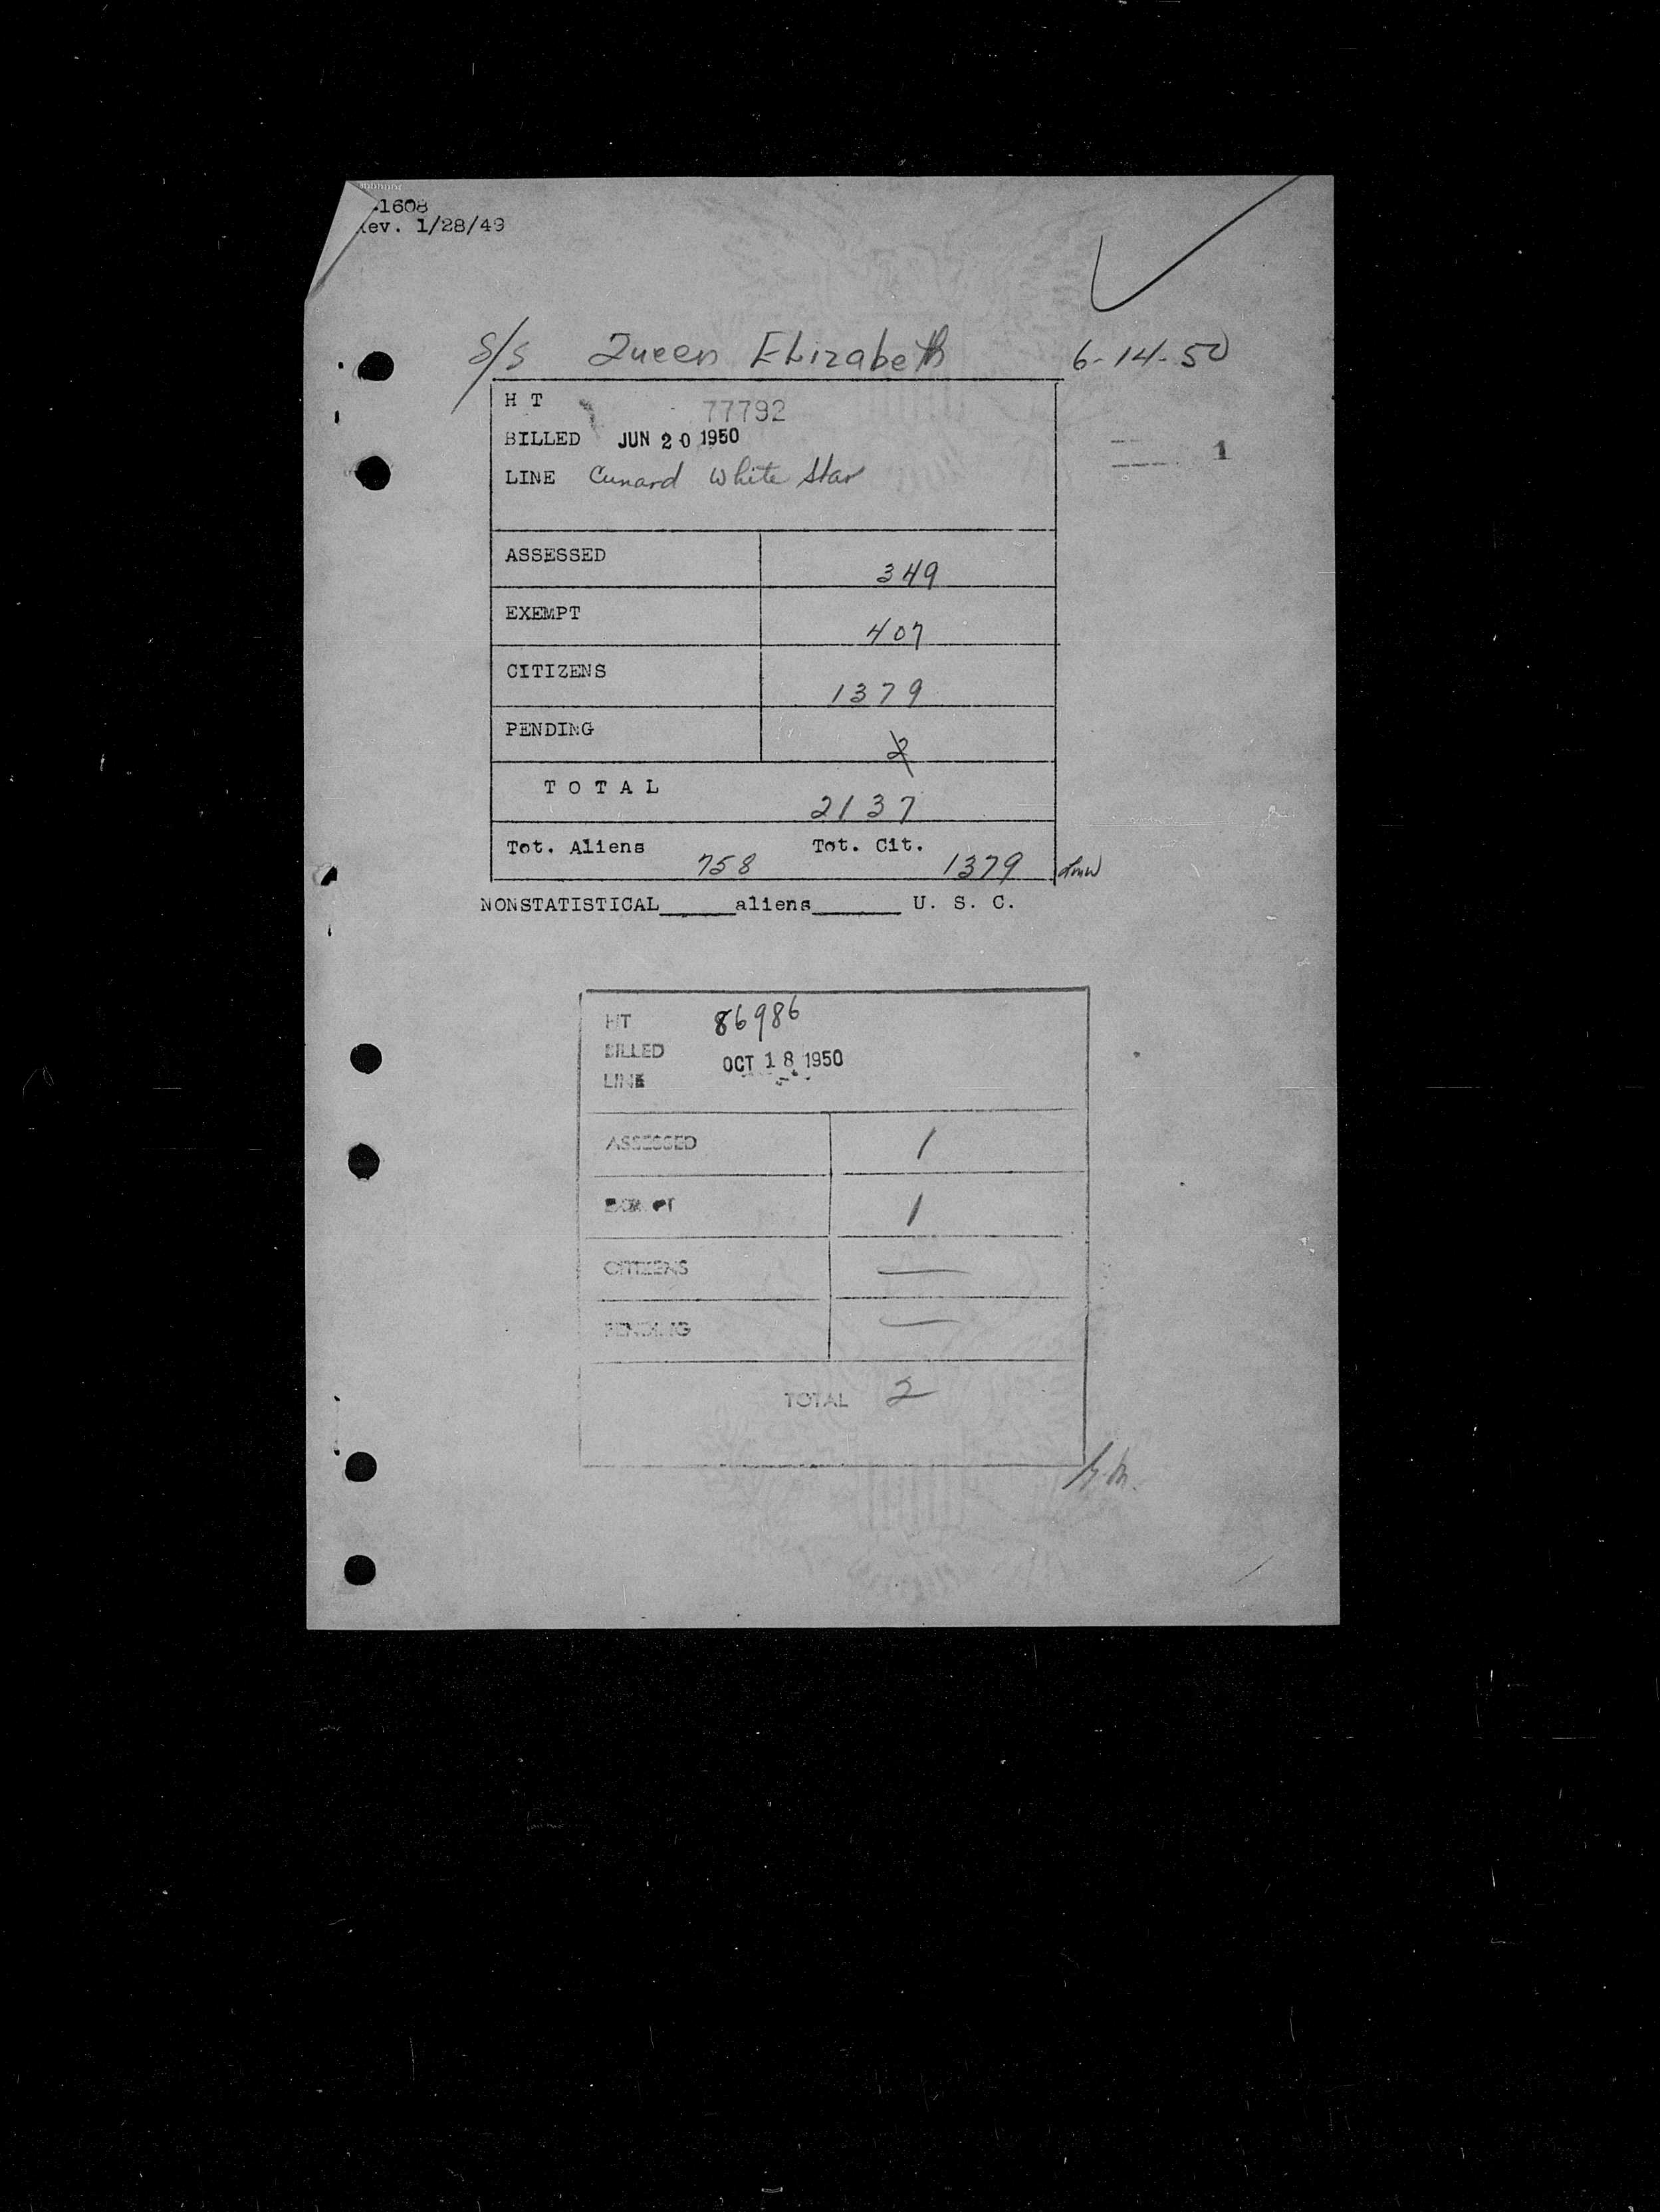 1608
ev. 1/28/49
S/S Queen Elizabeth 6-14-50
H T 77792
BILLED JUN 20 1950
1
LINE Cunard White Star
ASSESSED 349
EXEMPT 407
CITIZENS 1379
PENDING 2
T O T A L 2137
Tot. Aliens 758 Tot. Cit. 1379
NONSTATISTICAL______aliens_______ U. S. C.
HT 86986
BILLED OCT 18 1950
LINE
ASSESSED 1
EXEMPT 1
CITIZENS —
PENDING —
TOTAL 2